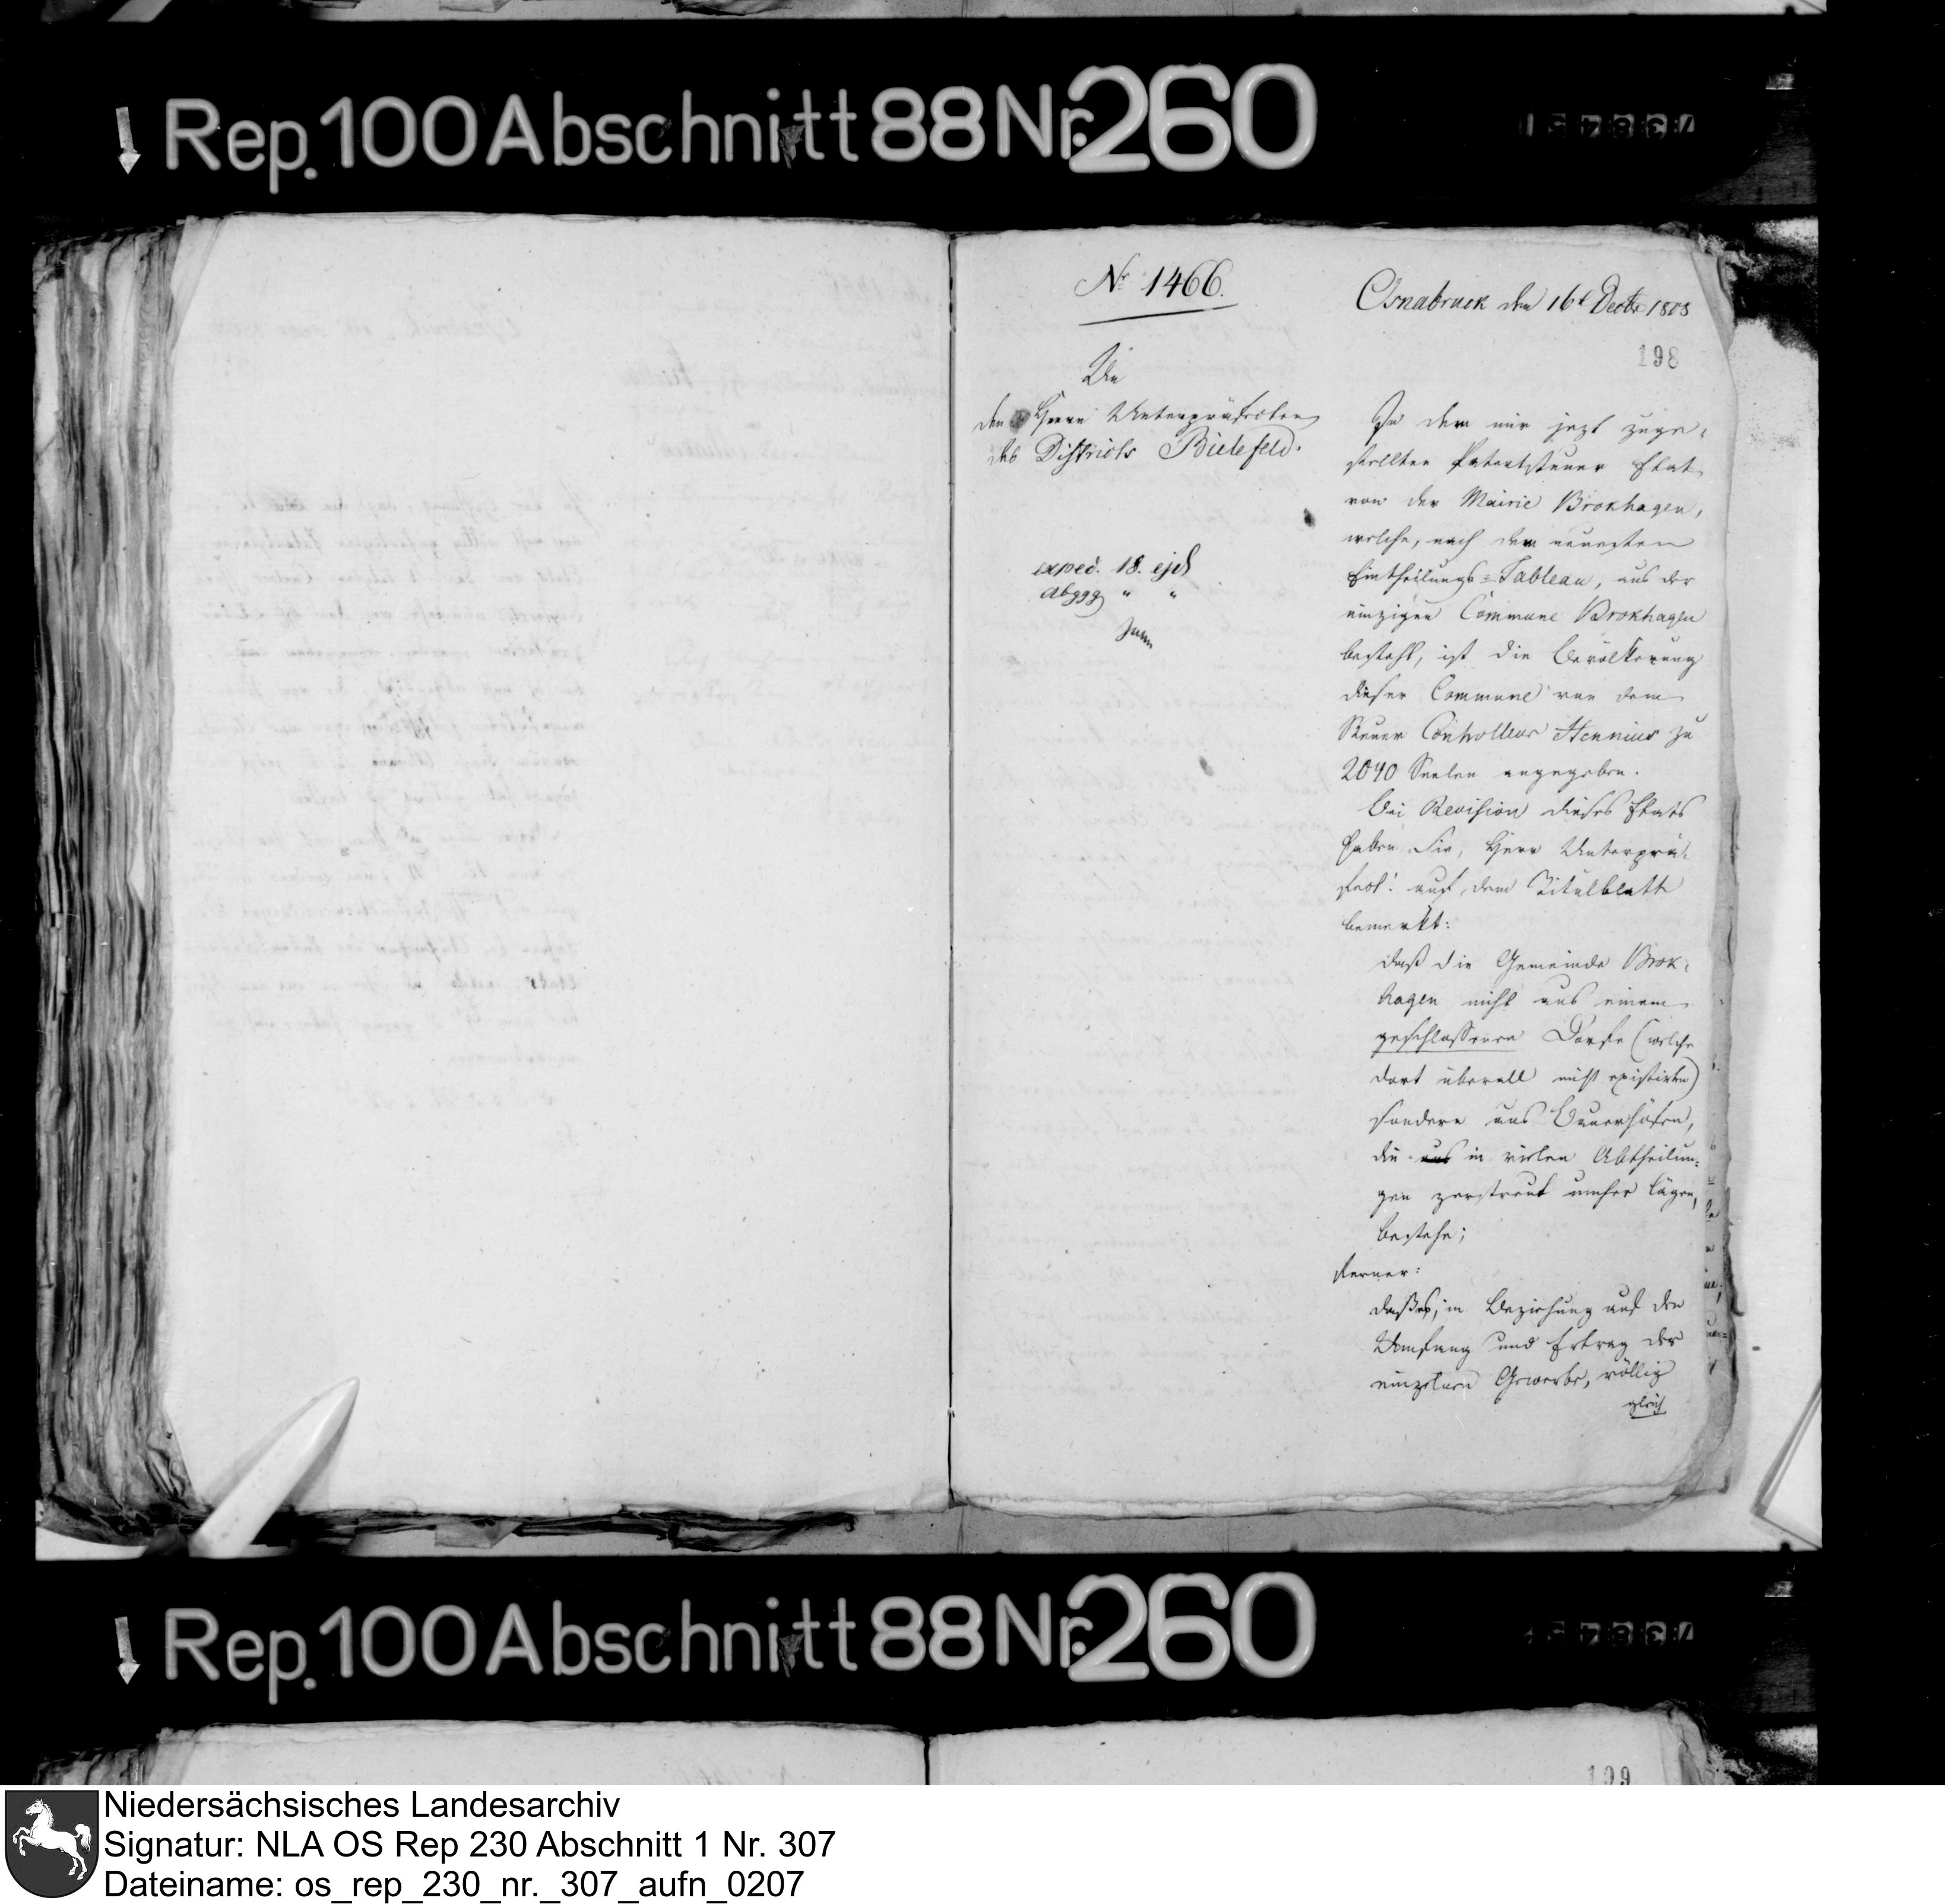 Rep. 100 Abschnitt 88 Nr. 260
Nr 1466.
Osnabruck den 16t Decbr 1808
198
An
den Herrn Unterpräfecten
des Districts Bielefeld.
exped. 18. ejd
abggg " "
In dem mir jezt zuge-
stellten Patentsteuer Etat
von der Mairie Brokhagen,
welche, nach dem neuesten
Eintheilungs-Tableau, aus der
einzigen Commune Brokhagen
besteht, ist die Bevölkerung
dieser Commune von dem
Steuer Controlleur Hennius zu
2040 Seelen angegeben.
Bei Revision dieses Etats
haben Sie, Herr Unterprä-
fect! auf dem Titulblatte
bemerkt:
daß die Gemeinde Brok-
hagen nicht aus einem
geschlossenen Dorfe (welche
dort überall nicht existirten)
sondern aus Bauerhöfen,
die aus in vielen Abtheilun-
gen zerstreut umher lägen,
bestehe;
ferner:
daß es, in Beziehung auf den
Umfang und Ertrag der
einzelnen Gewerbe, völlig
gleich
Rep. 100 Abschnitt 88 Nr. 260
199
Niedersächsisches Landesarchiv
Signatur: NLA OS Rep 230 Abschnitt 1 Nr. 307
Dateiname: os_rep_230_nr._307_aufn_0207